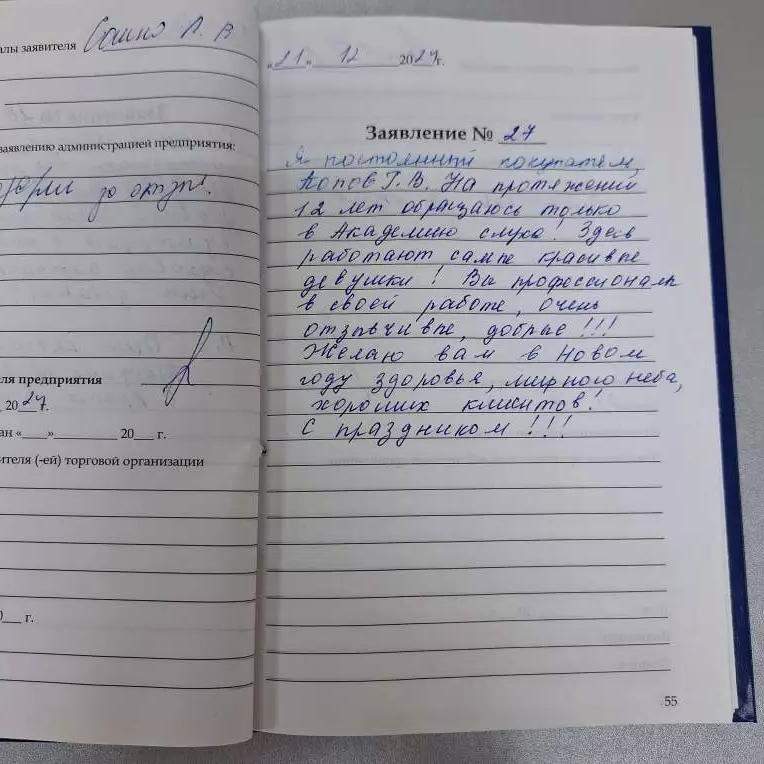 алы заявителя Сашко Л. В
заявлению администрацией предприятия:
за отзыв!
ля предприятия
20 24г.
ан «___»__________ 20___ г.
ителя (-ей) торговой организации
0___ г.
«21» 12 2024г.
Заявление № 27
Я постоянный покупатель,
Попов Г. В. На протяжений
12 лет обращаюсь только
в Академию слуха! Здесь
работают самые красивые
девушки! Вы профессионалы
в своей работе, очень
отзывчивые, добрые!!!
Желаю вам в Новом
году здоровья, мирного неба,
хороших клиентов!
С праздником!!!
55